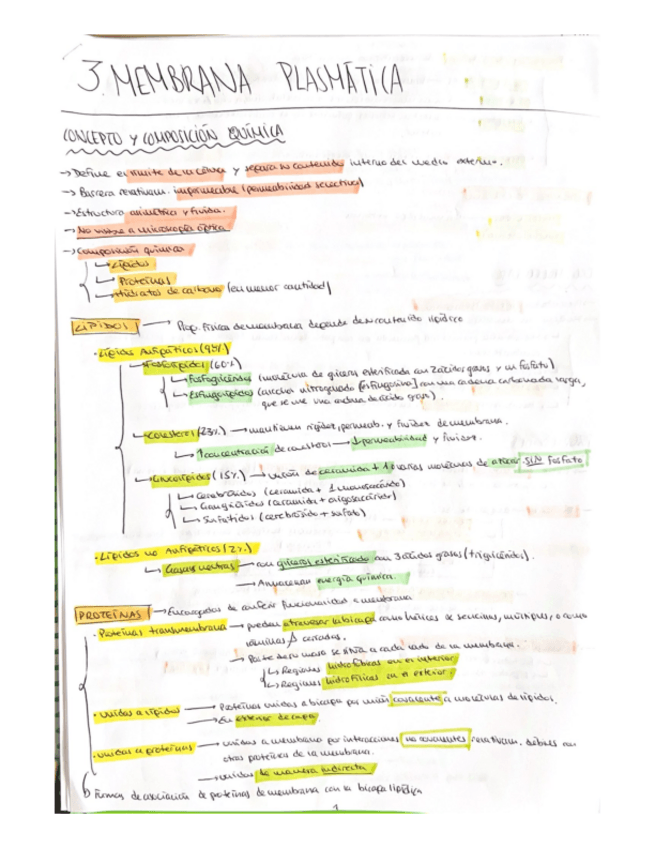 3. MEMBRANA PLASMÁTICA
CONCEPTO Y COMPOSICIÓN QUÍMICA
→ Define el límite de la célula y separa su contenido interno del medio externo.
→ Barrera relativam. impermeable (permeabilidad selectiva)
→ Estructura asimétrica y fluida.
→ No visible a microscopía óptica
→ Composición química
Lípidos
Proteínas
Hidratos de carbono (en menor cantidad)
LÍPIDOS → Prop. físicas de membrana depende de su contenido lipídico
· Lípidos Anfipáticos (98%)
Fosfolípidos (60%)
Fosfoglicéridos (molécula de glicerol esterificada con 2 ácidos grasos y un fosfato)
Esfingolípidos (alcohol nitrogenado [esfingosina] con una cadena carbonada larga,
que se une una cadena de ácido graso).
Colesterol (23%) → mantienen rigidez, permeab. y fluidez de membrana.
↑ concentración de colesterol → ↓ permeabilidad y fluidez.
Glucolípidos (15%) → unión de ceramida + 1 o varias moléculas de azúcar SIN fosfato
Cerebrósidos (ceramida + 1 monosacárido)
Gangliósidos (ceramida + oligosacárido)
Sulfátidos (cerebrósido + sulfato)
· Lípidos no Anfipáticos (2%)
Grasas neutras → con glicerol esterificado con 3 ácidos grasos (triglicéridos).
→ Almacenan energía química.
PROTEÍNAS → Encargadas de conferir funcionalidad a membrana
· Proteínas transmembrana → pueden atravesar la bicapa como hélices α sencillas, múltiples, o como
láminas β cerradas.
→ Parte de su masa se sitúa a cada lado de la membrana.
Regiones hidrofóbicas en el interior.
Regiones hidrofílicas en el exterior.
· Unidas a lípidos → Proteínas unidas a bicapa por unión covalente a moléculas de lípidos.
→ En exterior de capa.
· Unidas a proteínas → unidas a membrana por interacciones no covalentes relativam. débiles con
otras proteínas de la membrana.
→ unidas de manera indirecta
Formas de asociación de proteínas de membrana con la bicapa lipídica
1